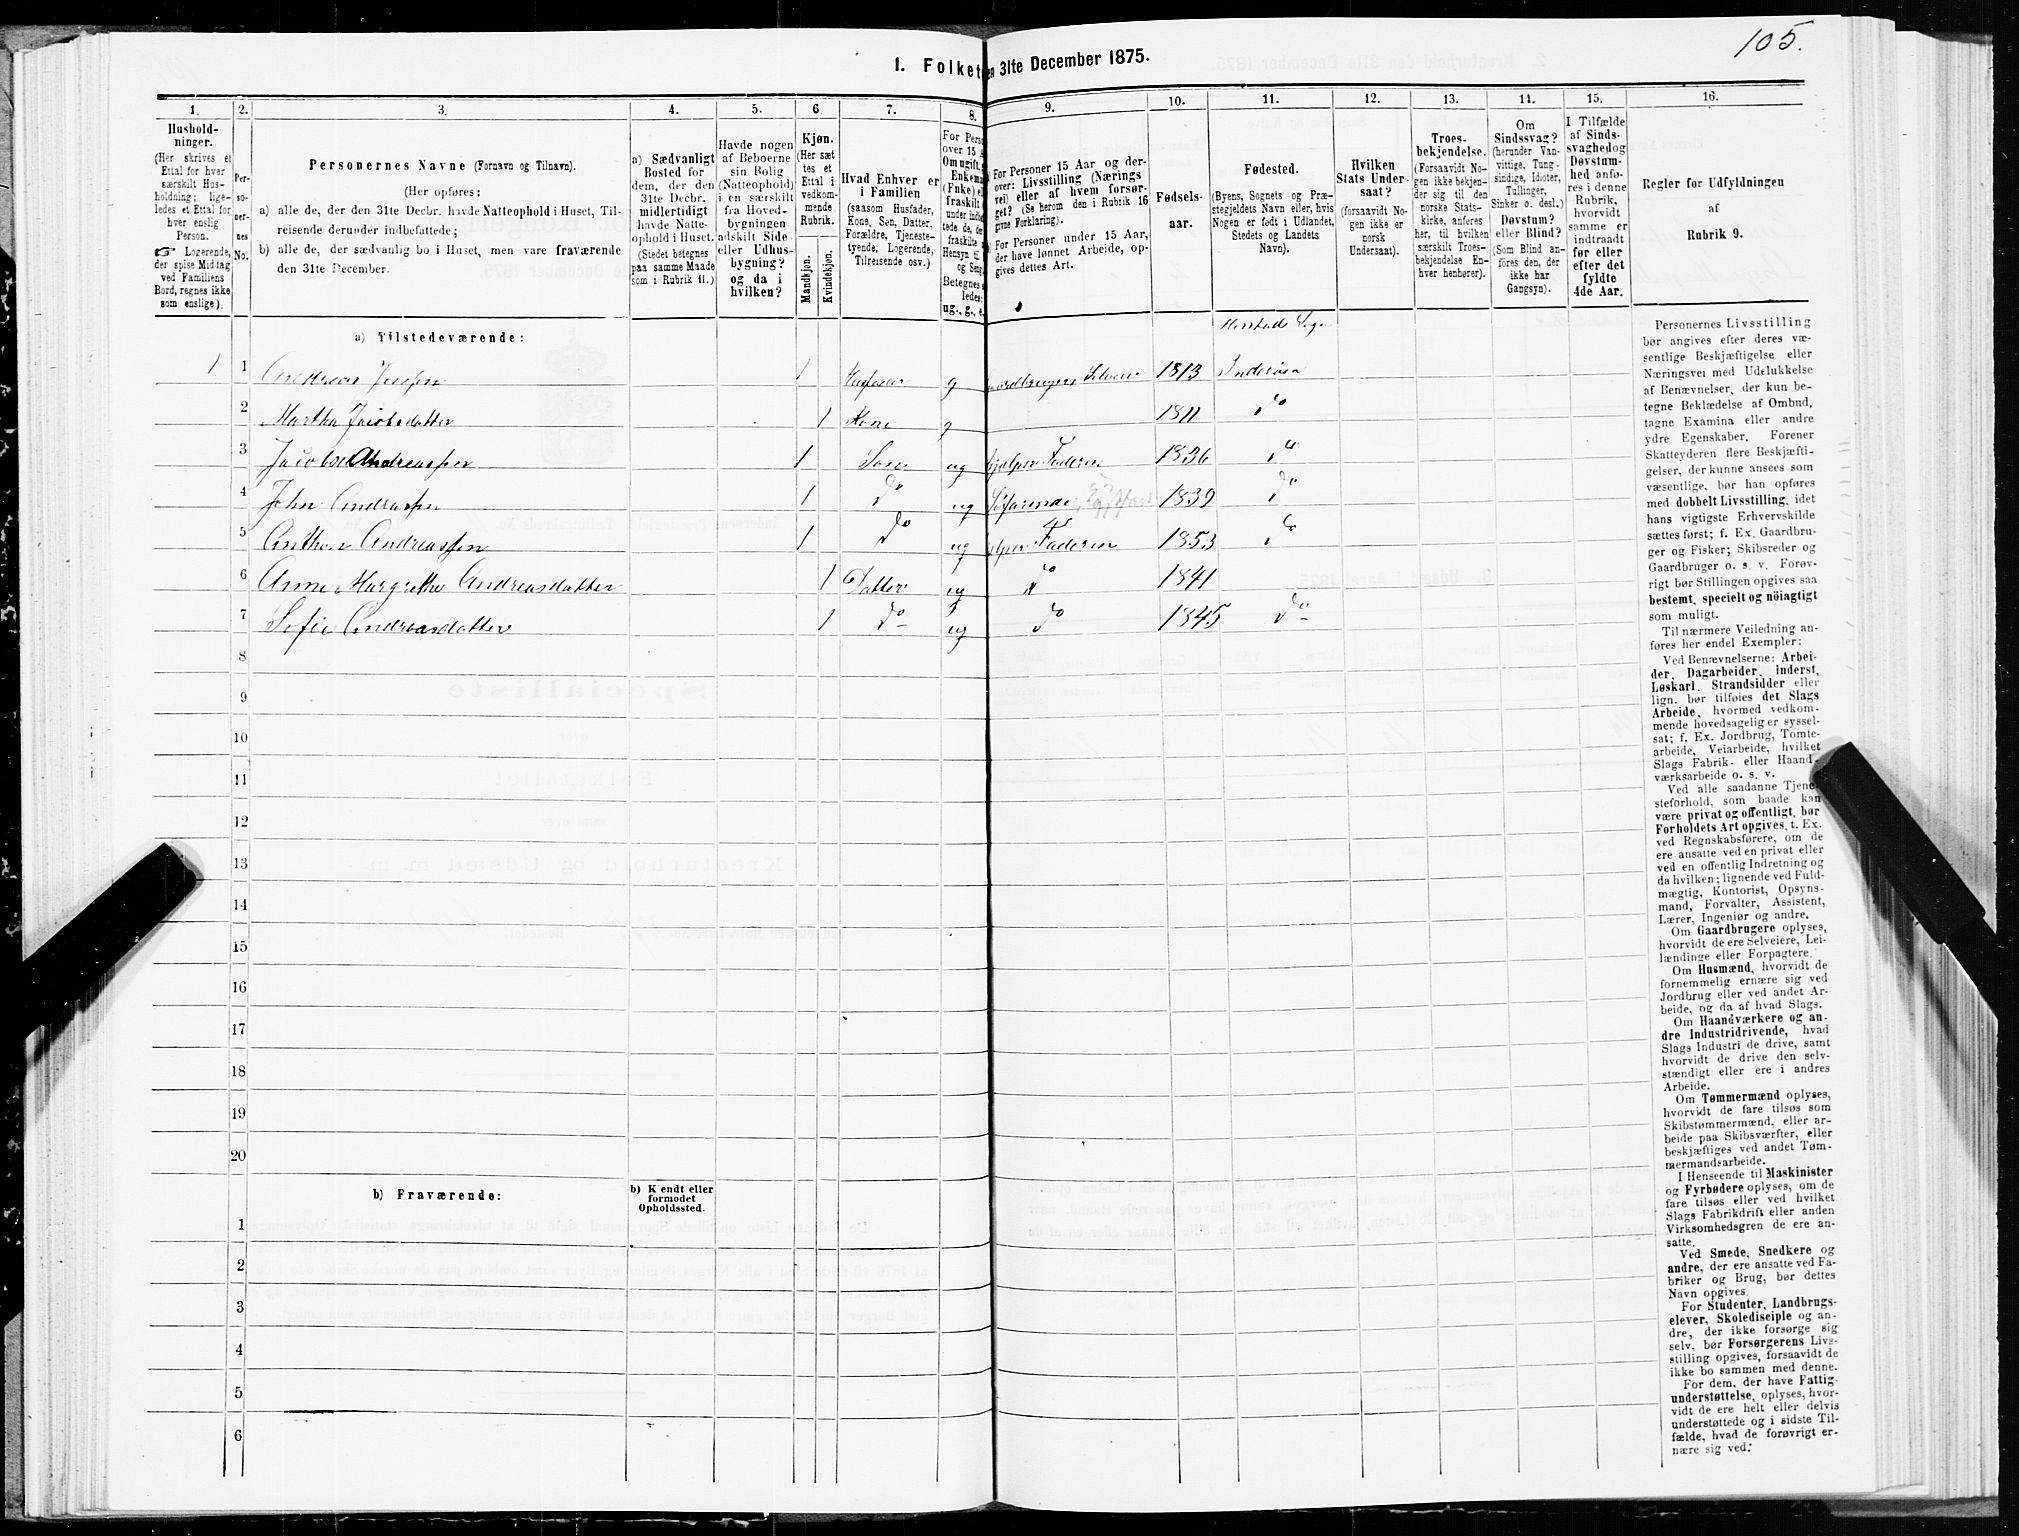 105.
1. Folket en 31te December 1875.
1. 2. 3. 4. 5. 6. 7. 8. 9. 10. 11. 12. 13. 14. 15. 16.
Hushold-
ninger.
(Her skrives et
Ettal for hver
særskilt Hus-
holdning; lige-
ledes et Ettal for
hver enslig
Person.
☞ Logerende,
der spise Middag
ved Familiens
Bord, regnes ikke
som enslige).
Per-
so-
ner-
nes
No.
Personernes Navne (Fornavn og Tilnavn).
(Her opføres:
a) alle de, der den 31te Decbr. havde Natteophold i Huset, Til-
reisende derunder indbefattede;
b) alle de, der sædvanlig bo i Huset, men vare fraværende
den 31te December.
a) Sædvanligt
Bosted for
dem, der den
31te Decbr.
midlertidigt
havde Natte-
ophold i Huset.
(Stedet betegnes
paa samme Maade
som i Rubrik 11.)
Havde nogen
af Beboerne
sin Bolig
(Natteophold)
i en særskilt
fra Hoved-
bygningen
adskilt Side-
eller Udhus-
bygning?
og da i
hvilken?
Kjøn.
(Her sæt
tes et
Ettal i
vedkom-
mende
Rubrik.
Mandkjøn.
Kvindekjøn.
Hvad Enhver er
i Familien
(saasom Husfader,
Kone, Søn, Datter,
Forældre, Tjeneste-
tyende, Logerende,
Tilreisende osv.)
For Pers
over 15
Om ugift,
Enkem
(Enke) e
fraskilt
under indb
tede de, de
fraskilte
Hensyn ti
og Seng
Betegnes
ledes:
ug., g., e.
For Personer 15 Aar og der-
over: Livsstilling (Nærings
vei) eller af hvem forsør-
get? (Se herom den i Rubrik 16
givne Forklaring).
For Personer under 15 Aar,
der have lønnet Arbeide, op-
gives dettes Art.
Fødsels-
aar.
Fødested.
(Byens, Sognets og Præ-
stegjeldets Navn eller, hvis
Nogen er født i Udlandet,
Stedets og Landets
Navn).
Hvilken
Stats Under-
saat?
(forsaavidt No-
gen ikke er
norsk
Undersaat).
Troes-
bekjendelse.
(Forsaavidt No-
gen ikke bekjen-
der sig til den
norske Stats-
kirke, anføres
her, til hvilken
særskilt Troes-
bekjendelse En-
hver henhører).
Om
Sindssvag?
(herunder Van-
vittige, Tung-
sindige, Idioter,
Tullinger,
Sinker o. desl.)
Døvstum?
eller Blind?
(Som Blind an-
føres den, der
ikke har
Gangsyn).
I Tilfælde
af Sinds-
svaghed og
Døvstum-
hed anfø-
res i denne
Rubrik,
hvorvidt
samme er
indtraadt
før eller
efter det
fyldte
4de Aar.
Regler for Udfyldningen
af
Rubrik 9.
a) Tilstedeværende:
Sogn
1 1 Andreas Jensen 1 Husfader g 1813 Inderøen
2 Martha Jacobsdatter 1 Kone g 1811 do
3 Jacob Andreassen 1 Søn ug hjelper Faderen 1836 do
4 John Andreassen 1 do ug Søfarende 1839 do
5 Anthon Andreassen 1 do ug Faderen 1853 do
6 Anne Margrethe Andreasdatter 1 Datter ug do 1841
7 Sofie Andreasdatter 1 do ug do 1845 do
8
9
10
11
12
13
14
15
16
17
18
19
20
b) Fraværende:
b) Kjendt eller
formodet
Opholdssted.
1
2
3
4
5
6
Personernes Livsstilling
bør angives efter deres væ-
sentlige Beskjæftigelse eller
Næringsvei med Udelukkelse
af Benævnelser, der kun be-
tegne Beklædelse af Ombud,
tagne Examina eller andre
ydre Egenskaber. Forener
Skatteyderen flere Beskjæfti-
gelser, der kunne ansees som
væsentlige, bør han opføres
med dobbelt Livsstilling, idet
hans vigtigste Erhvervskilde
sættes først; f. Ex. Gaardbru-
ger og Fisker; Skibsreder og
Gaardbruger o. s. v. Forøv-
rigt bør Stillingen opgives saa
bestemt, specielt og nöiagtigt
som muligt.
Til nærmere Veiledning an-
føres her endel Exempler:
Ved Benævnelserne: Arbei-
der, Dagarbeider, Inderst,
Løskarl, Strandsidder eller
lign. bør tilføies det Slags
Arbeide, hvormed vedkom-
mende hovedsagelig er syssel-
sat; f. Ex. Jordbrug, Tomte-
arbeide, Veiarbeide, hvilket
Slags Fabrik- eller Haand-
værksarbeide o. s. v.
Ved alle saadanne Tjene-
steforhold, som baade kan
være privat og offentligt, bør
Forholdets Art opgives, t. Ex.
ved Regnskabsførere, om de
ere ansatte ved en privat eller
ved en offentlig Indretning og
da hvilken; lignende ved Fuld-
mægtig, Kontorist, Opsyns-
mand, Forvalter, Assistent,
Lærer, Ingeniør og andre.
Om Gaardbrugere oplyses,
hvorvidt de ere Selveiere, Lei-
lændinge eller Forpagtere.
Om Husmænd, hvorvidt de
fornemmelig ernære sig ved
Jordbrug eller ved andet Ar-
beide, og da af hvad Slags.
Om Haandværkere og an-
dre Industridrivende, hvad
Slags Industri de drive, samt
hvorvidt de drive den selv-
stændigt eller ere i andres
Arbeide.
Om Tømmermænd oplyses,
hvorvidt de fare tilsøs som
Skibstømmermænd, eller ar-
beide paa Skibsværfter, eller
beskjæftiges ved andet Tøm-
mermandsarbeide.
I Henseende til Maskinister
og Fyrbødere oplyses, om de
fare tilsøs eller ved hvilket
Slags Fabrikdrift eller anden
Virksomhedsgren de ere an-
satte.
Ved Smede, Snedkere og
andre, der ere ansatte ved Fa-
briker og Brug, bør dettes
Navn opgives.
For Studenter, Landbrugs-
elever, Skoledisciple og an-
dre, der ikke forsørge sig
selv, bør Forsørgerens Livs-
stilling opgives, forsaavidt de
ikke bo sammen med denne.
For dem, der have Fattig-
understøttelse, oplyses, hvor-
vidt de ere helt eller delvis
understøttede og i sidste Til-
fælde, hvad de forøvrigt er-
nære sig ved.